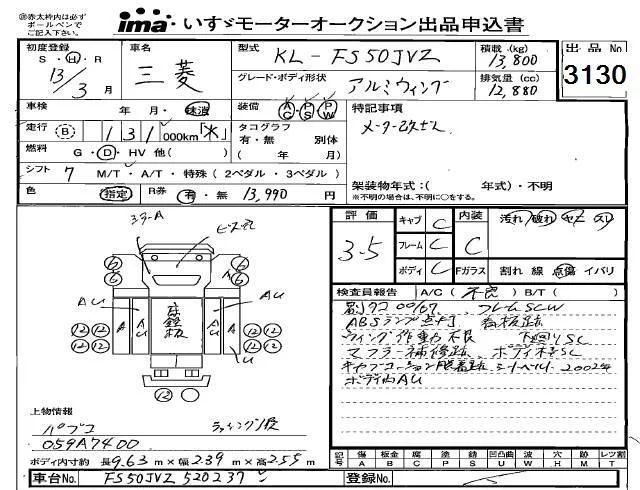 ㊟赤太枠内は必ず
ボールペンで
ご記入下さい。
ima いすゞモーターオークション出品申込書
初度登録 S・H・R 13/3 月
車名 三菱
型式 KL-FS50JVZ
積載(kg) 13,800
出品No 3130
グレード・ボディ形状 アルミウィング
排気量(cc) 12,880
車検 年 月・抹消
装備 AC PS PW
特記事項
メーター改ざん
走行 B 131,000km「*」
タコグラフ 有・無 別体
( 年 月)
燃料 G・D・HV 他( )
シフト 7 M/T・A/T・特殊(2ペダル・3ペダル)
色 指定 R券 有・無 13,990 円
架装物年式:( 年式)・不明
※不明の場合は、不明に○をする。
評価 3.5
キャブ C
フレーム C
ボディ C
内装 C
汚れ 破れ
Fガラス 割れ 線 点傷 イバリ
検査員報告 A/C(不良) B/T( )
フレームSCW
ABSランプ点灯 看板跡
ウィング作動不良 下廻りSC
マフラー補修跡、ボディ下SC
2002年
ボディ内AU
コラーA
AU AU
A AU AU A
上物情報
パブコ
059A7400
ボディ内寸約 長9.63m×幅2.39m×高2.55m
記号 傷A 板金B 腐C 塗P 錆S 凹凸曲U 波W 穴H 跡M レツ割T
車台No. FS50JVZ 520237
登録No.